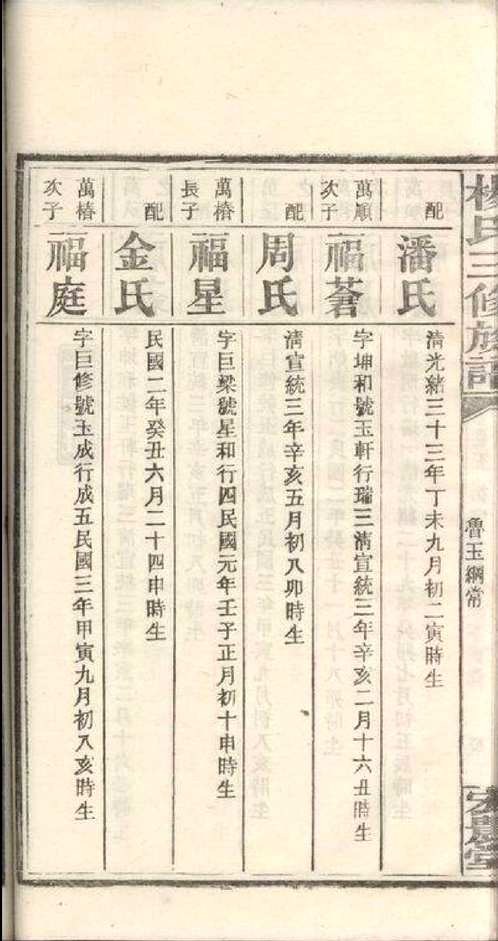 楊氏三修族譜
魯玉綱常
配
潘氏
清光緒三十三年丁未九月初二寅時生
萬順
次子
福蒼
字坤和號玉軒行瑞三清宣統三年辛亥二月十六丑時生
配
周氏
清宣統三年辛亥五月初八卯時生
萬椿
長子
福星
字巨梁號星和行四民國元年壬子正月初十申時生
配
金氏
民國二年癸丑六月二十四申時生
萬椿
次子
福庭
字巨修號玉成行成五民國三年甲寅九月初八亥時生